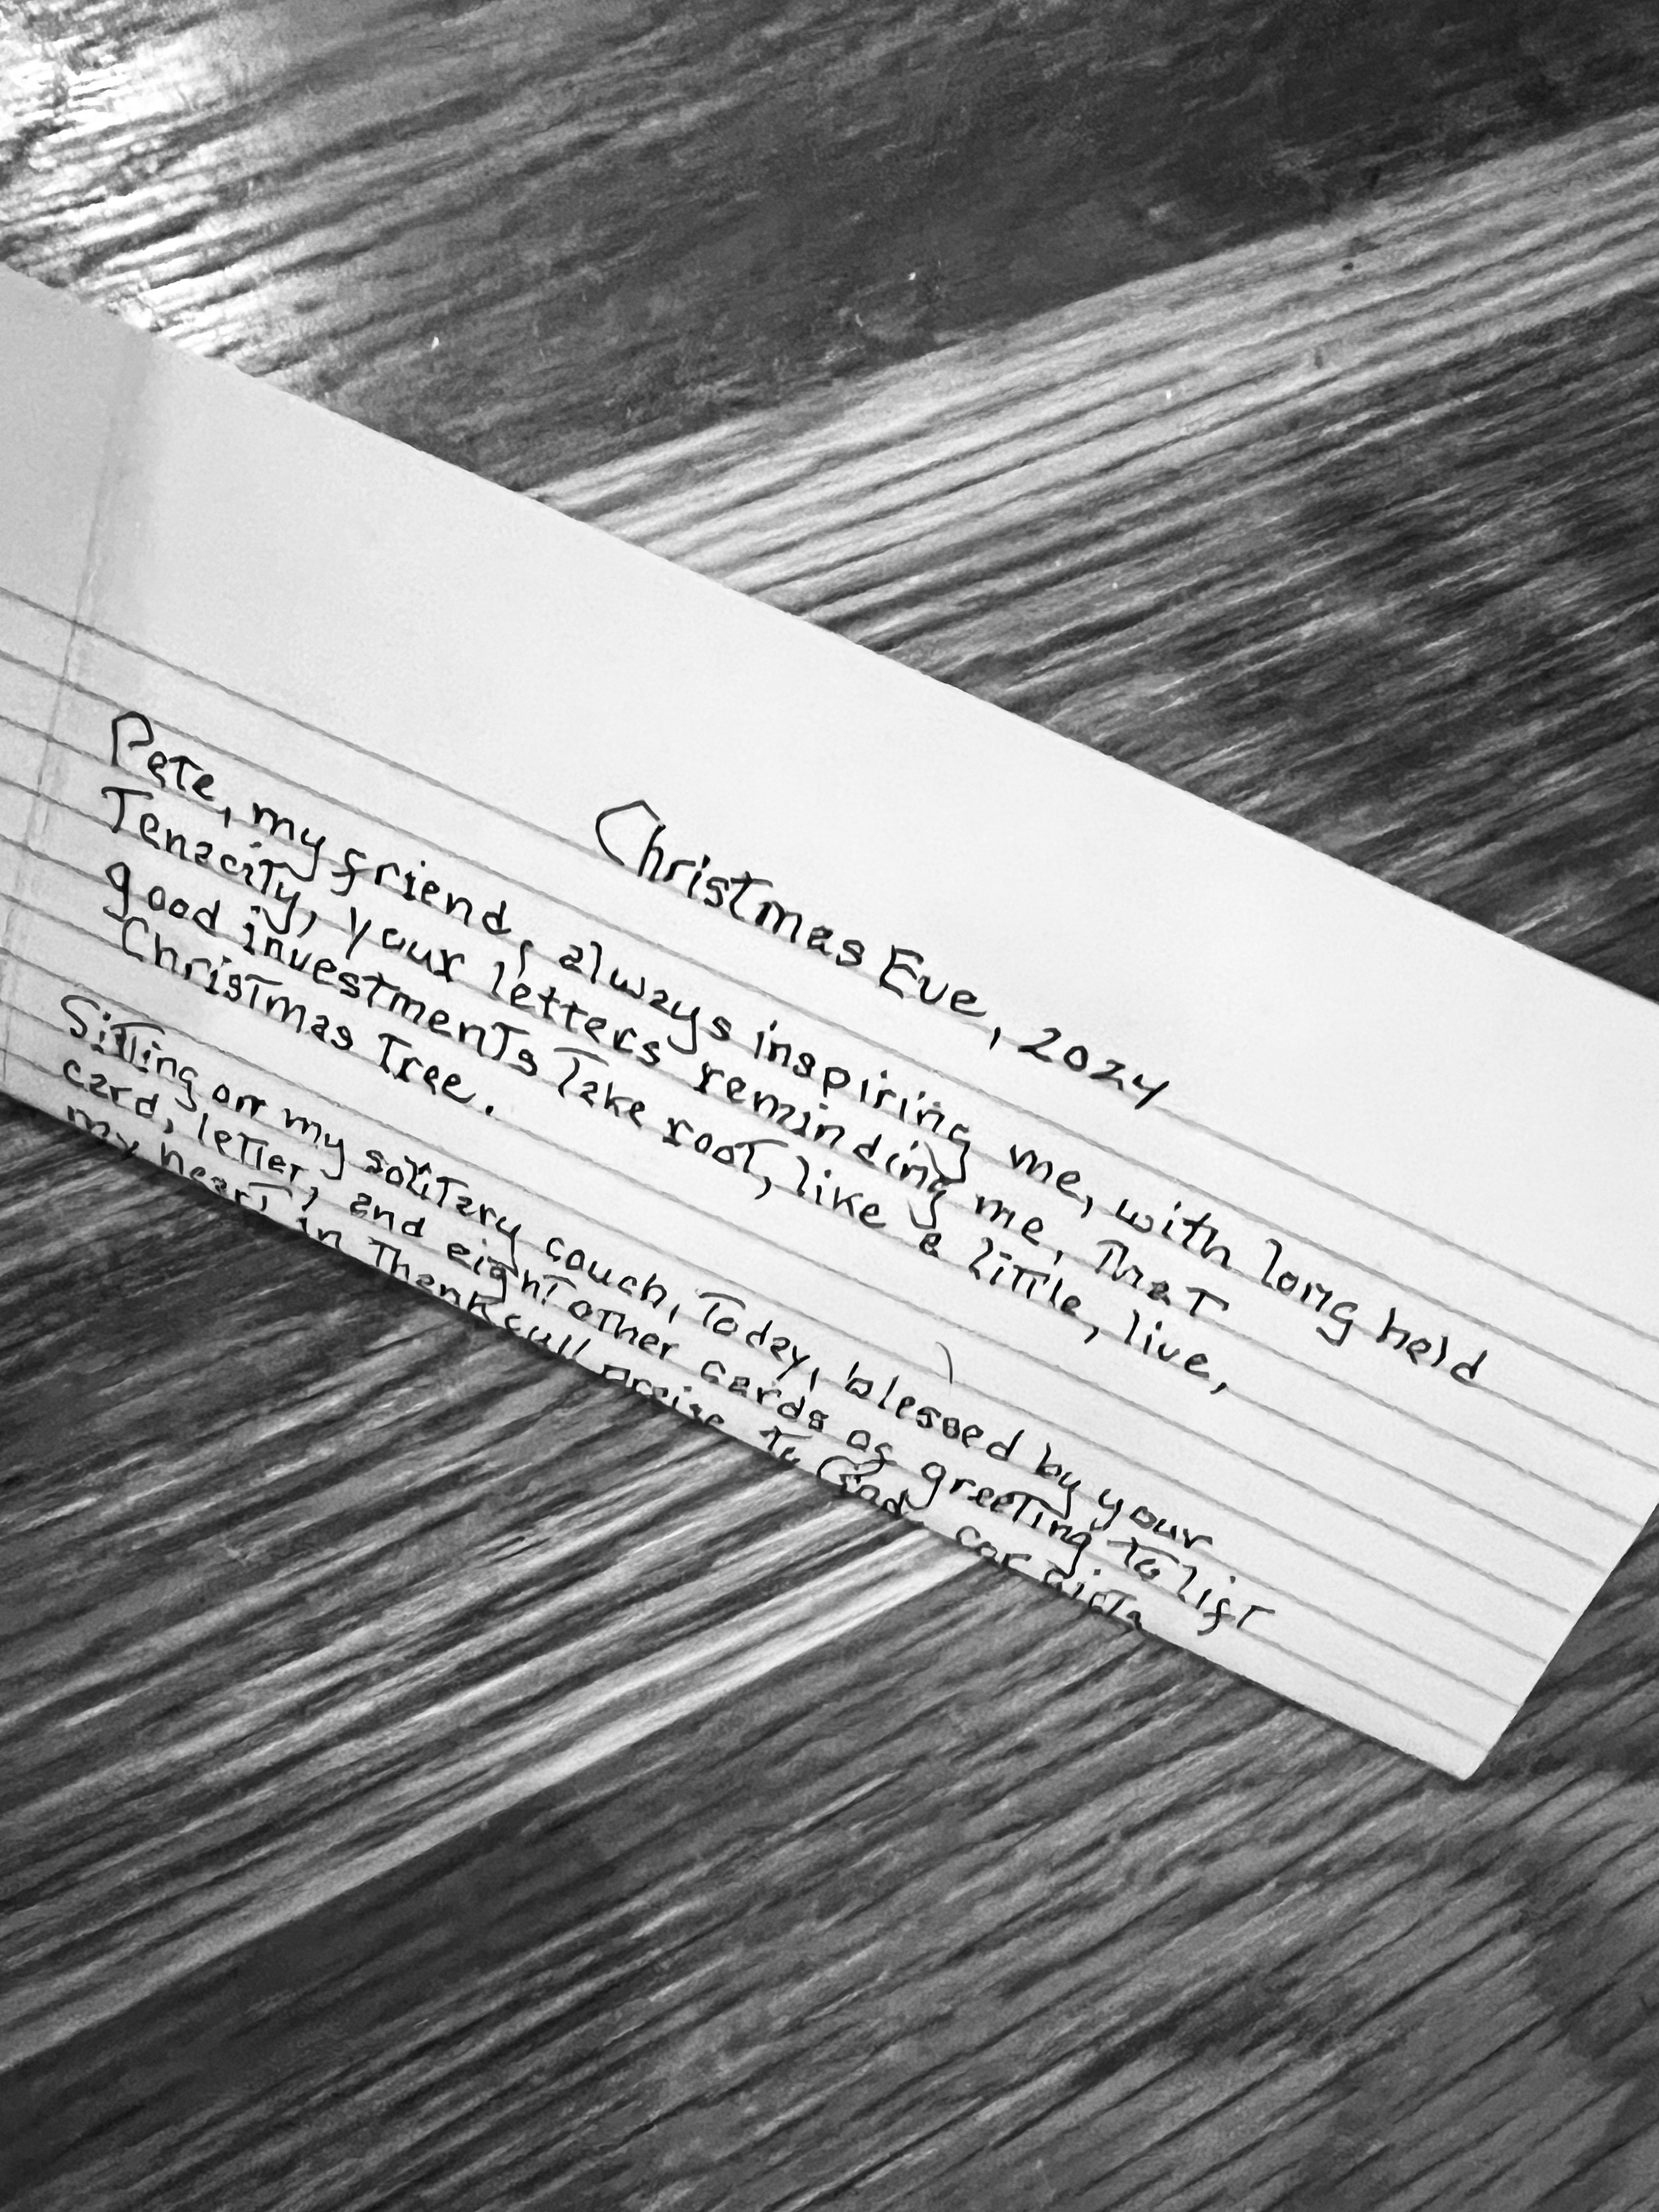 Christmas Eve, 2024
Pete, my friend, always inspiring me, with long held
Tenacity, your letters reminding me, That
good investments Take root, like a little, live,
Christmas Tree.
Sitting on my solitary couch, Today, blessed by your
card, letter, and eight other cards of greeting to lift
my heart in Thankfull praise To God for